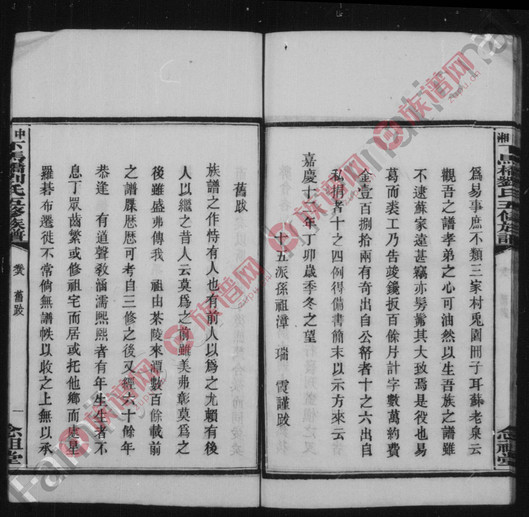 為易事庶不類三家村兎園冊子耳蘇老泉云
觀吾之譜孝弟之心可油然以生吾族之譜雖
不逮蘇家遠甚竊亦勞鬻其大致焉是役也易
葛而裘工乃告竣鑱板百餘片計字數萬約費
金壹百捌拾兩有奇出自公帑者十之六出自
私捐者十之四例得備書簡末以示方來云
嘉慶十二年丁卯歲季冬之望
十五派孫祖漳瑞霞謹跋
舊跋
族譜之作恃有人也有前人以為之尤賴有後
人以繼之昔人云莫為之前雖美弗彰莫為之
後雖盛弗傳我祖由茶陵來潭數百餘載前
之譜牒歷歷可考自三修之後又經六十餘年
恭逢有道聲教涵濡熙熙者有年生生者不
息丁眾齒繁或修祖宅而居或托他鄉而處星
羅碁布遷徙不常倘無譜帙以收之上無以承
中下馬橋劉氏五修族譜
舊跋
一
念祖堂
族谱网